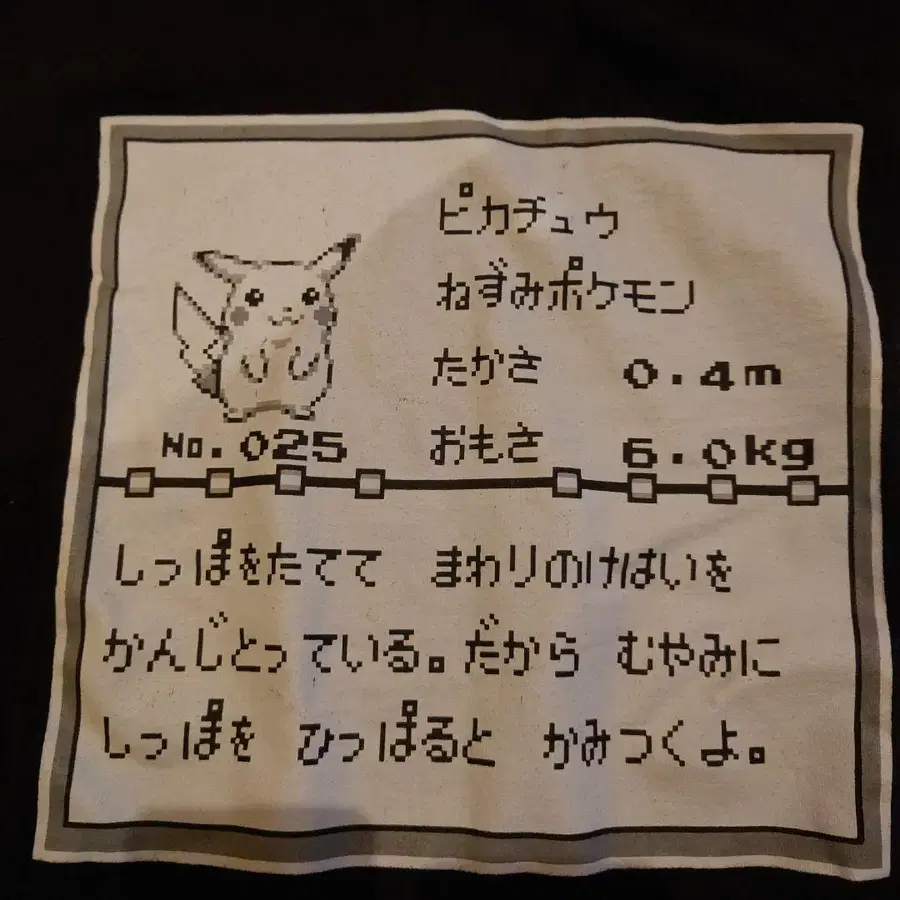 ピカチュウ
ねずみポケモン
たかさ 0.4m
おもさ 6.0kg
No.025
しっぽをたてて まわりのけはいを
かんじとっている。だから むやみに
しっぽを ひっぱると かみつくよ。